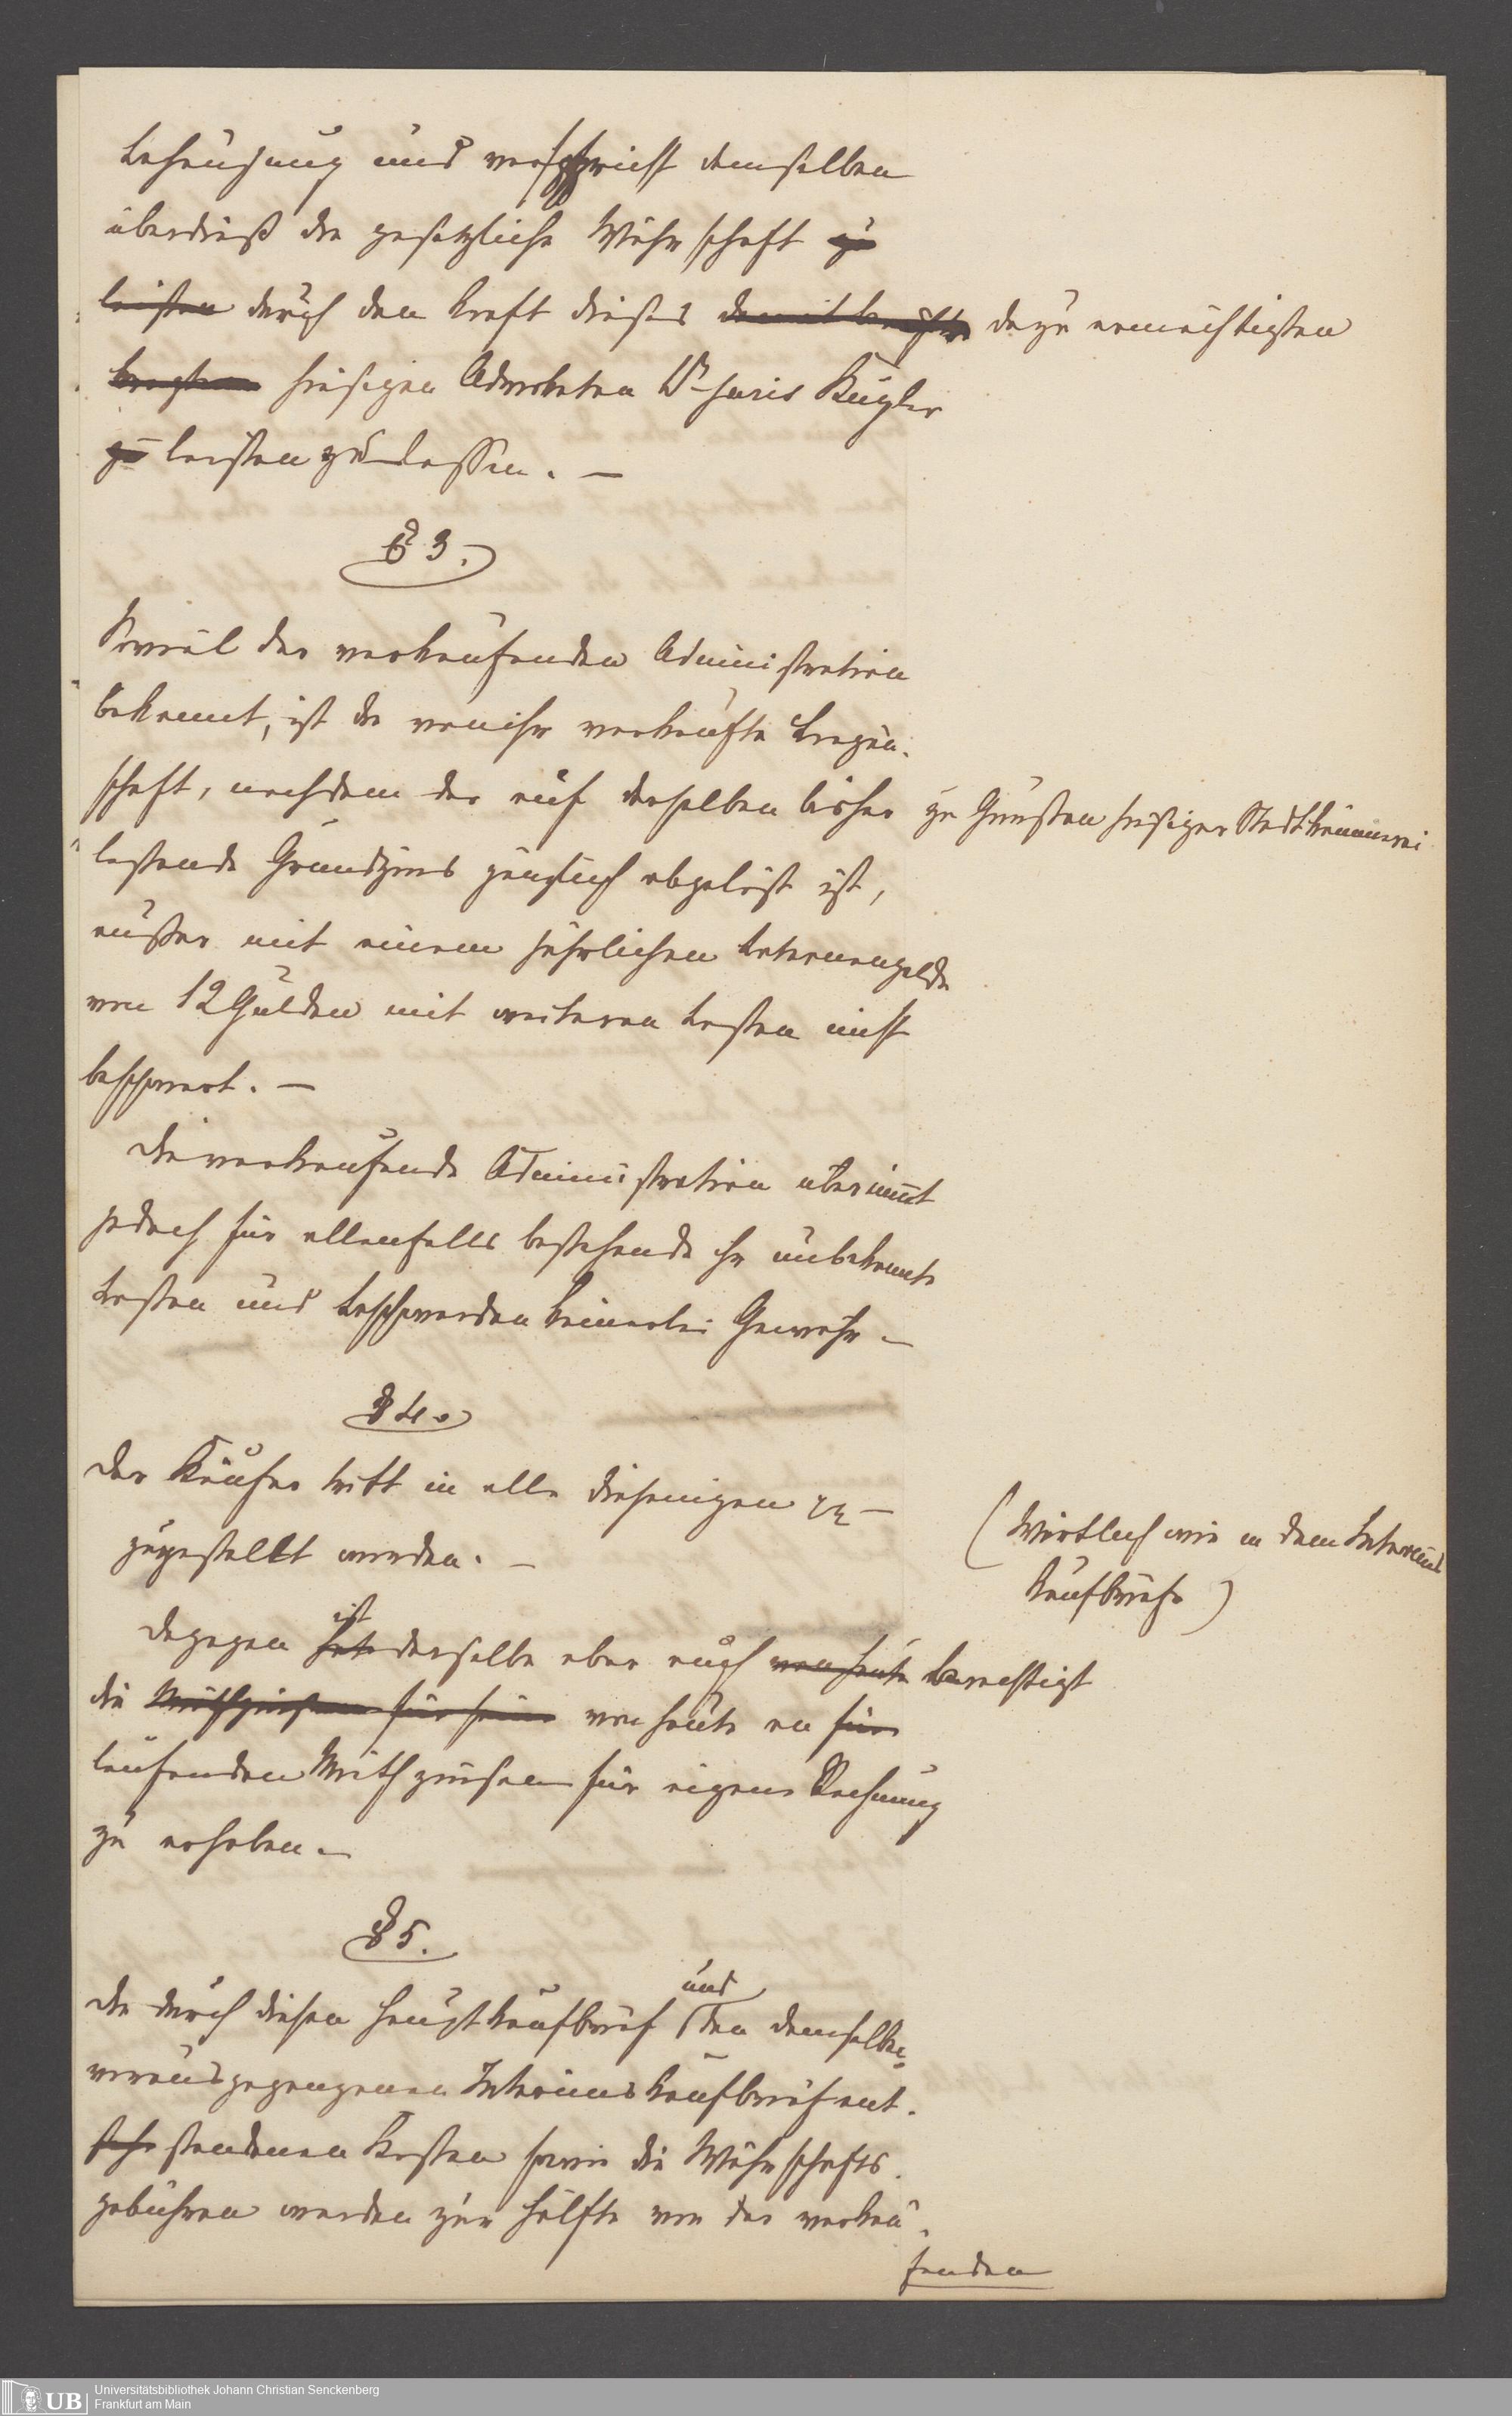 Behausung und verspricht demselben
überdieß die gesetzliche Währschaft zu
leisten durch den Kraft dieses damit beauftr dazu ermächtigten
hiesigen Advokaten Dr juris Kugler
zu leisten zu lassen. —
§ 3.
Soviel der verkaufenden Administration
bekannt, ist die von ihr verkaufte Liegen-
schaft, nachdem der auf derselben bisher zu Gunsten hiesiger Stadtkämmerei
lastende Grundzins gänzlich abgelöst ist,
außer mit einem jährlichen Laternengelde
von 12 Gulden mit weiteren Lasten nicht
beschwert. —
Die verkaufende Administration übernimmt
jedoch für allenfalls bestehende ihr unbekannte
Lasten und Beschwerden keinerlei Gewähr —
§ 4.
Der Käufer tritt in alle diejenigen etc —
zugestellt werden. —
(Wörtlich wie in dem Interims
Kaufbriefe)
ist
Dagegen hat derselbe aber auch von heute berechtigt
die Miethzinsen für seine von heute an für
laufenden Miethzinsen für eigene Rechnung
zu erheben —
§ 5.
und
Die durch diesen Hauptkaufbrief den demselben
vorausgegangenen Interimskaufbrief ent-
stehe standenen Kosten sowie die Währschafts-
gebühren werden zur Hälfte von der verkau-
fenden
UB
Universitätsbibliothek Johann Christian Senckenberg
Frankfurt am Main